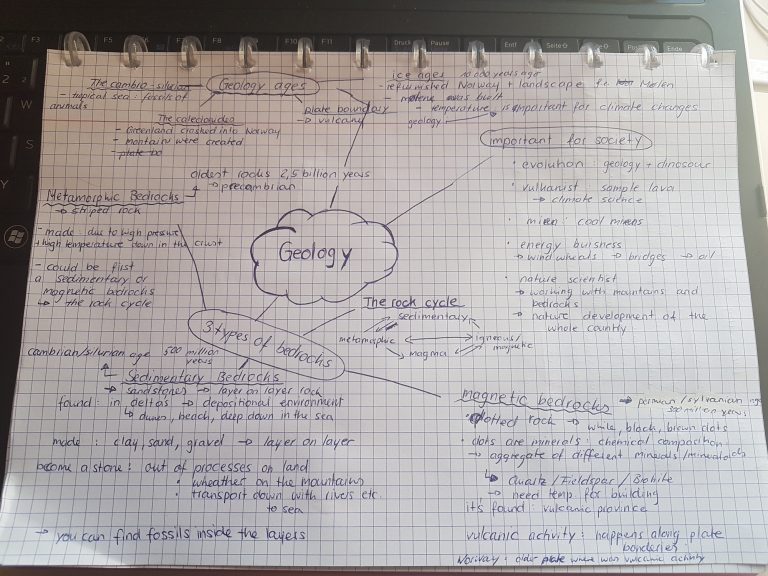 F3
F6
F7
F8
F9
F10
F11
Druck
Pause
Entf
Ende
The cambro-silurian
- topical sea: fossils of
animals
Geology ages
The caleclonides
- Greenland crashed into Norway
- montains were created
- plate
plate boundary
→ vulcany
ice ages 10 000 years ago
- refurnished Norway + landscape f.e. Molen
- was built
- temperature is important for climate changes
geology
oldest rocks 2,5 billion years
→ precambrian
Metamorphic Bedrocks
→ striped rock
- made: due to high pressure
+ high temperature down in the crust
- could be first
a sedimentary or
magnetic bedrocks
↳ the rock cycle
Geology
important for society
• evolution: geology + dinosour
• vulkanist: sample lava
→ climate science
• minen: coal minens
• energy buisness
→ wind wheals → bridges → oil
• nature scientist
→ working with mountains and
bedrocks
→ nature development of the
whole country
The rock cycle
sedimentary
metamorphic
igneous/
magnetic
magma
3 types of bedrocks
cambrian/silurian age 500 million
years
Sedimentary Bedrocks
→ sandstones → layer on layer rock
found: in deltas → depositional environment
↳ dunes, beach, deep down in the sea
made: clay, sand, gravel → layer on layer
become a stone: out of processes on land
• wheather on the mountains
• transport down with rivers etc.
to sea
→ you can find fossils inside the layers
magnetic bedrocks → permian/sylvanian age
million years
• dotted rock → white, black, brown dots
• dots are minerals: chemical composition
→ aggregate of different minerals/mineraloids
↳ Quartz/Fieldspar/Biohite
→ need temp. for building
it's found: vulcanic province
vulcanic activity: happens along plate
bonderies
Norway: older plate where was vulcanic activity